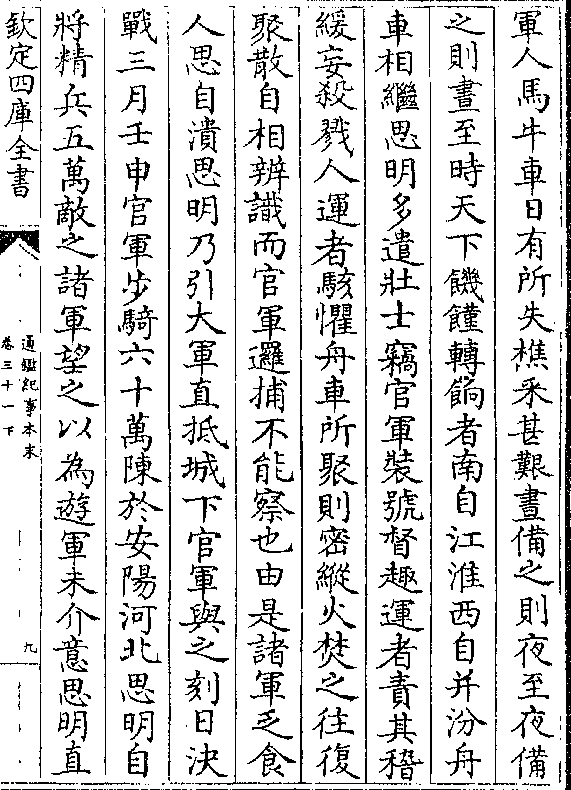 軍人馬牛車日有所失樵采甚艱晝備之則夜至夜備
之則晝至時天下饑饉轉餉者南自江淮西自并汾舟
車相繼思明多遣壯士竊官軍裝號督趣運者責其稽
緩妄殺戮人運者駭懼舟車所聚則密縱火焚之往復
聚散自相辨識而官軍邏捕不能察也由是諸軍乏食
人思自潰思明乃引大軍直抵城下官軍與之刻日決
戰三月壬申官軍步騎六十萬陳於安陽河北思明自
將精兵五萬敵之諸軍望之以為遊軍未介意思明直
欽定四庫全書
通鑑紀事本末
卷三十一下
九